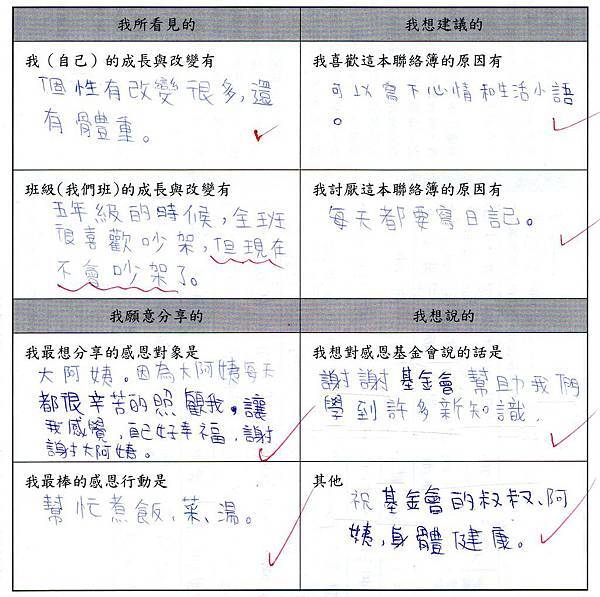 我所看見的
我（自己）的成長與改變有
個性有改變很多，還
有體重。
班級(我們班)的成長與改變有
五年級的時候，全班
很喜歡吵架，但現在
不會吵架了。
我想建議的
我喜歡這本聯絡簿的原因有
可以寫下心情和生活小語
。
我討厭這本聯絡簿的原因有
每天都要寫日記。
我願意分享的
我最想分享的感恩對象是
大阿姨。因為大阿姨每天
都很辛苦的照顧我，讓
我感覺，自己好幸福，謝
謝大阿姨。
我最棒的感恩行動是
幫忙煮飯、菜、湯。
我想說的
我想對感恩基金會說的話是
謝謝基金會幫助我們
學到許多新知識.
其他
祝基金會的叔叔、阿
姨，身體健康。